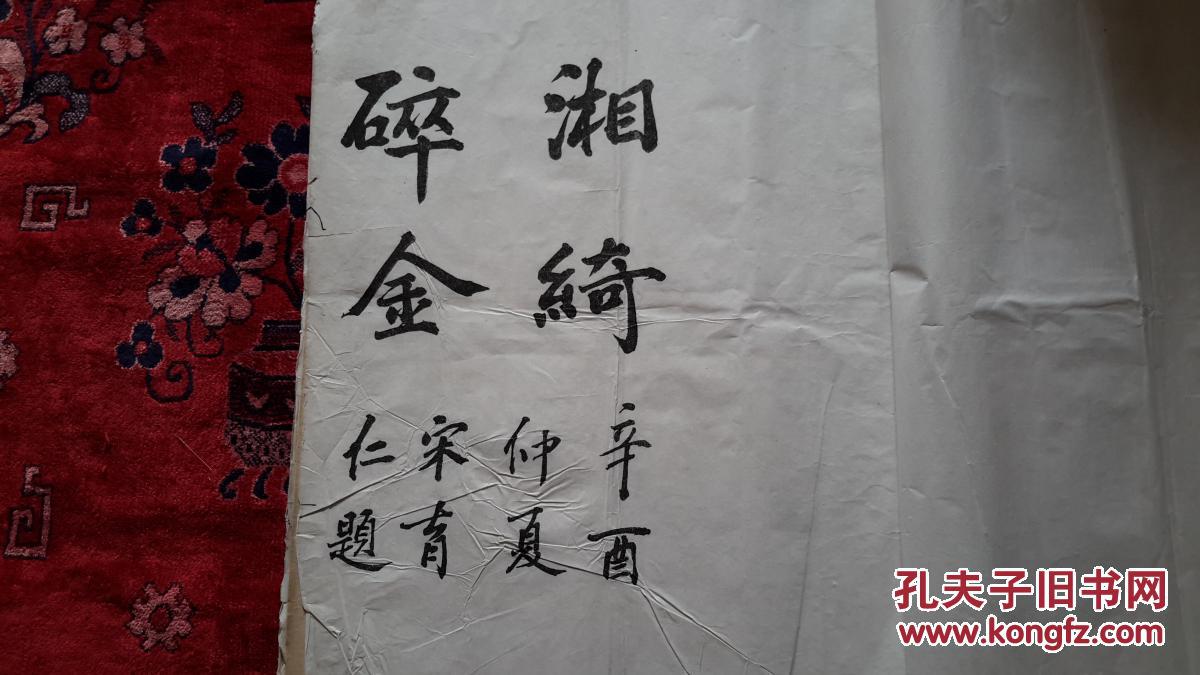 湘綺
碎金
辛酉
仲夏
宋育
仁題
孔夫子旧书网
www.kongfz.com